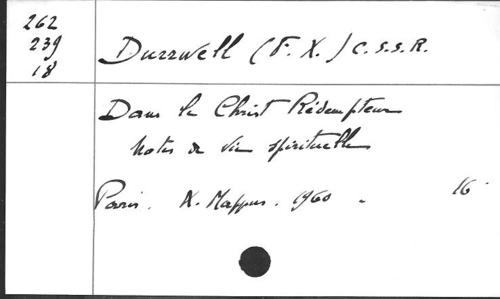 262
239
18
Durrwell (F. X.) C.S.S.R.
Dans le Christ Rédempteur
Notes de vie spirituelle
Paris. X. Mappus. 1960 - 16